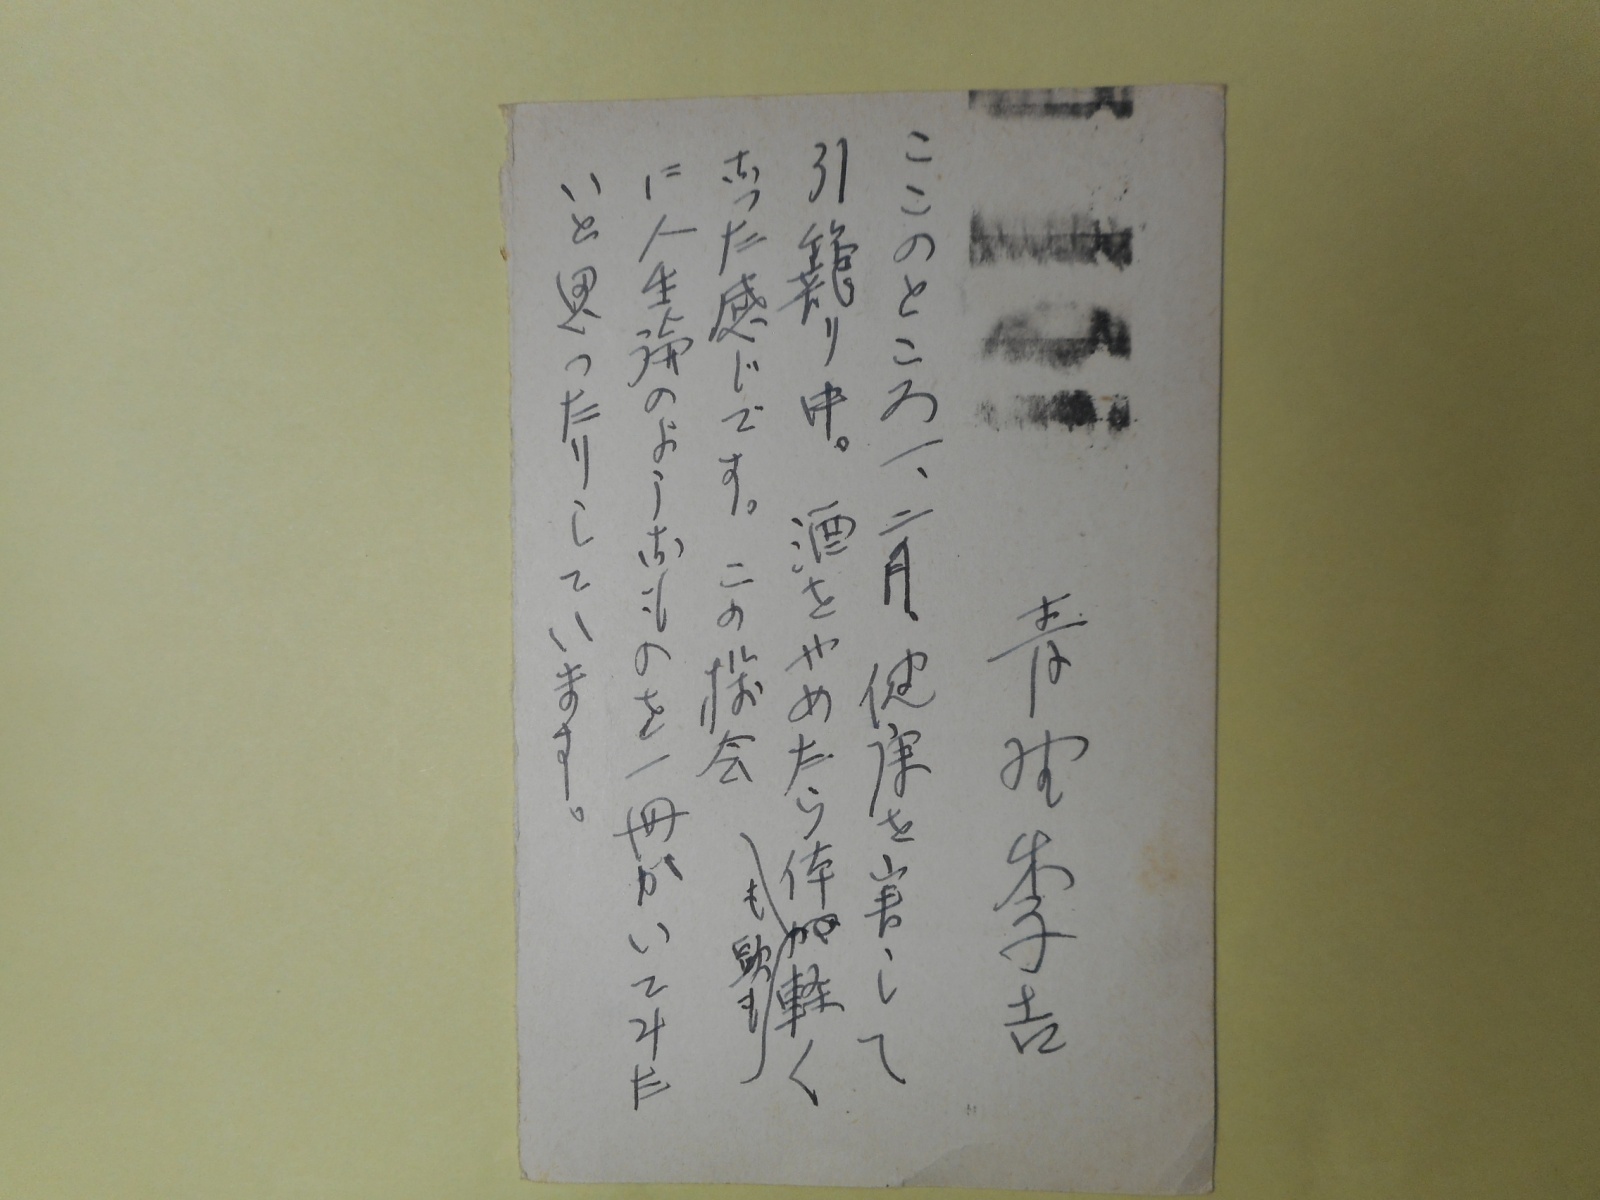 青野季吉
ここのところ一、二月、健康を害して
引籠り中。酒をやめたら体が軽く
も頭も
なった感じです。この機会
に人生論のようなものを一冊かいてみた
いと思ったりしています。